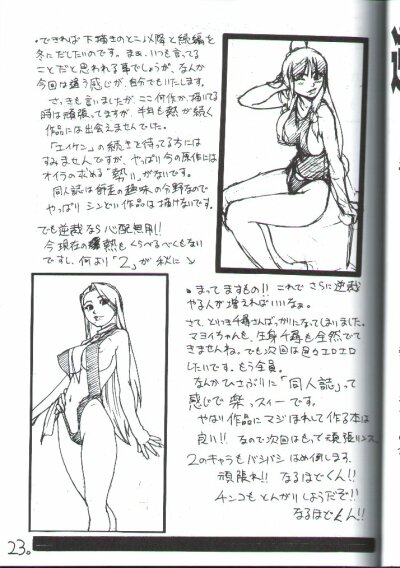 ・できれば下描きのとこ以降と続編を
冬にだしたいのです。まぁ、いつも言ってる
ことだと思われる事でしょうが、なんか
今回は違う感じが、自分でもいたします。
さっきも言いましたが、ここ何作か、描いてる
時は頑張ってますが、半年も熱が続く
作品には出会えませんでした。
「エイケン」の続きと待ってる方には
すみませんですが、やっぱり今の原作には
オイラの求める"熱い"がないです。
同人誌は師走の趣味の分野なので
やっぱり シンドい作品は描けないです。
でも逆裁なら心配無用!!
今現在の熱もくらべるべくもない
ですし、何より「2」が秋に
・まってますもの!! これで さらに逆裁
やる人が増えればいいなぁ。
さて、とにかく千尋さんばっかりになってしまいました。
マヨイちゃんも、生身千尋も全然でて
きませんね。でも次回は色々エロエロ
したいです。もう全員。
なんかひさぶりに「同人誌」って
感じで楽っスィーです。
やはり作品にマジほれして作る本は
良い!! なので次回はもって頑張りマス。
2のキャラもバシバシ はめ倒します。
頑張れ!! なるほどくん!!
チンコもとんがりしようだぞ!!
なるほどくん!!
23。